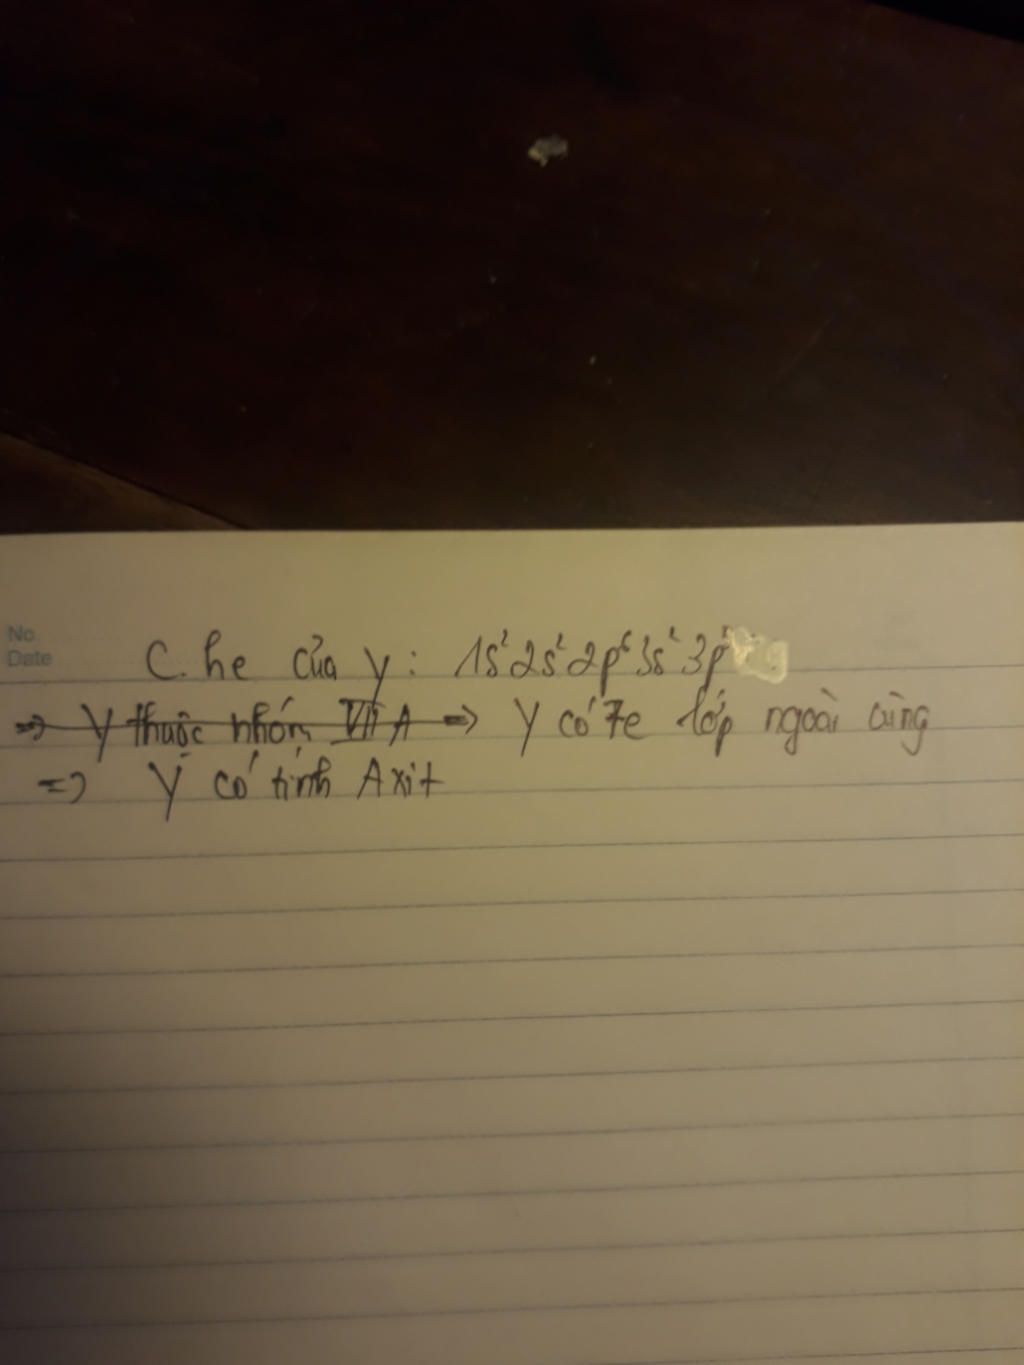 No.
Date
C. he của y: 1s²2s²2p⁶3s²3p
=> Y thuộc nhóm VII A => Y có 7e lớp ngoài cùng
=> Y có tính Axit